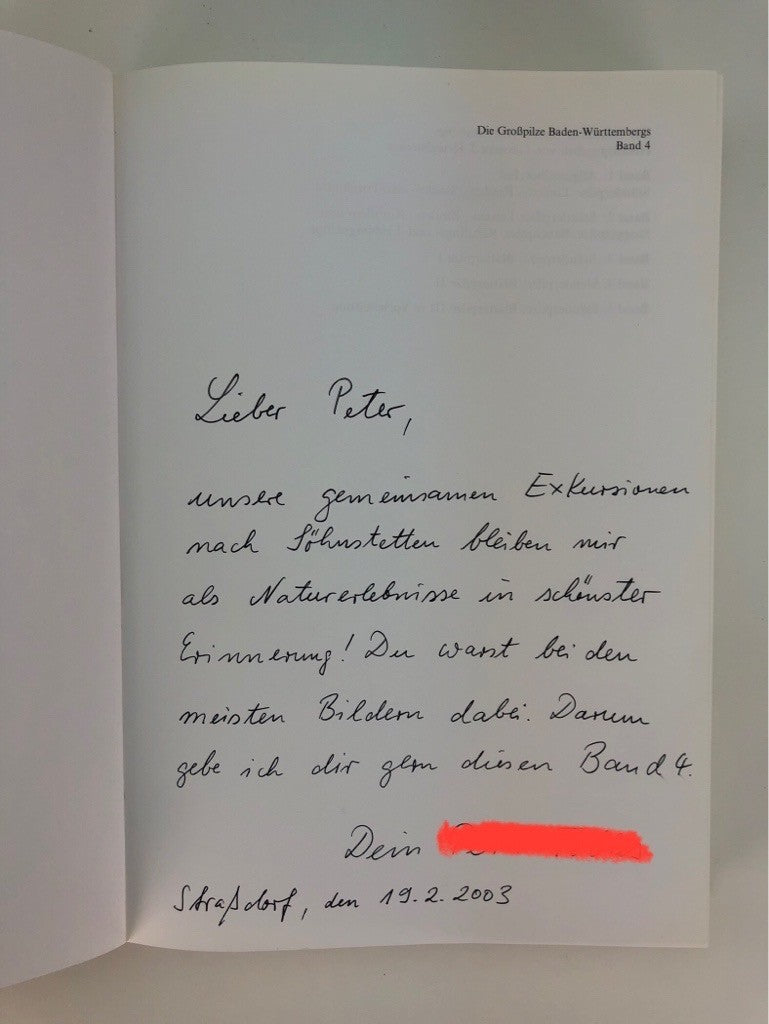 Die Großpilze Baden-Württembergs
Band 4
Lieber Peter,
unsere gemeinsamen Exkursionen
nach Söhnstetten bleiben mir
als Naturerlebnisse in schönster
Erinnerung! Du warst bei den
meisten Bildern dabei. Darum
gebe ich dir gern diesen Band 4.
Dein
Straßdorf, den 19.2.2003